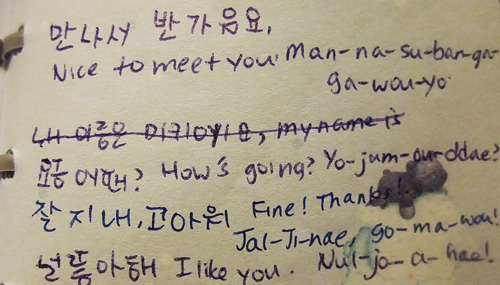 만나서 반가워요.
Nice to meet you! Man-na-su-ban-ga-
ga-wou-yo
내 이름은 미키에요, my name is
요즘 어때? How's going? Yo-jum-our-ddae?
잘 지내, 고마워 Fine! Thanks!
Jal-Ji-nae, go-ma-wou!
널 좋아해 I like you. Nul-jo-a-hae!